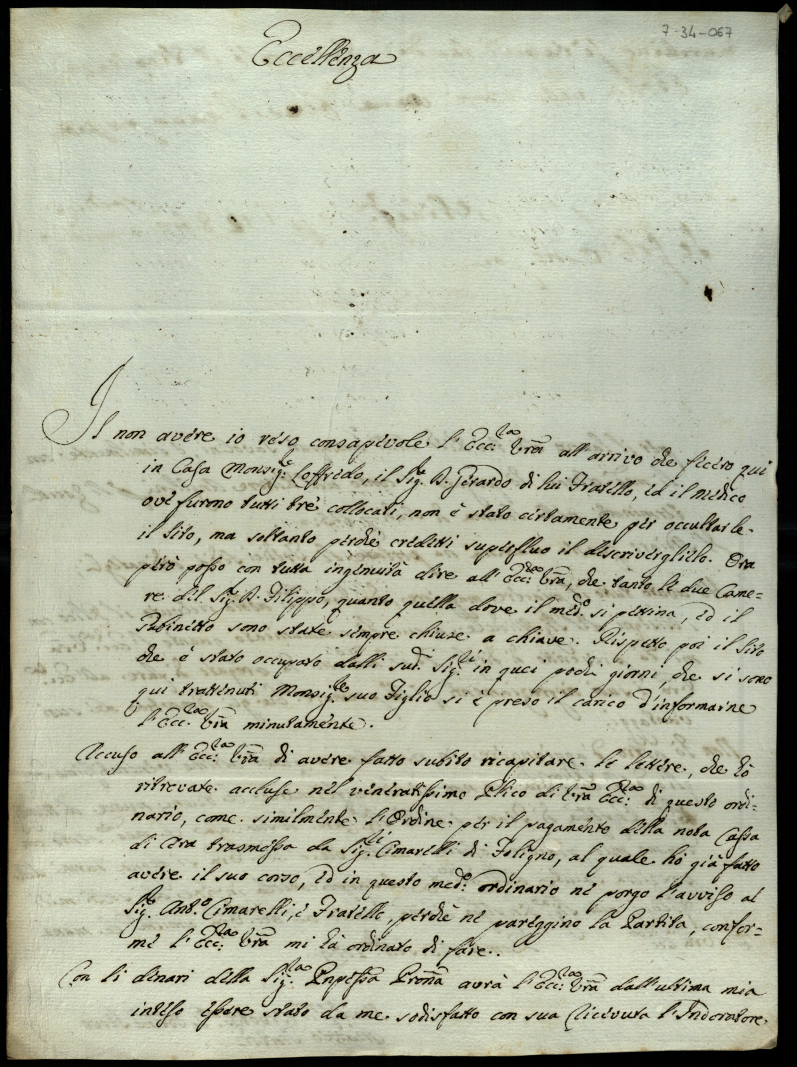 7-34-067
Eccellenza
Il non avere io reso consapevole l'Ecc:za Vra all'arrivo che fecero qui
in Casa Monsig.r Loffredo, il Sig.r D. Gerardo di lui Fratello, ed il Medico
ove furono tutti trè collocati, non è stato certamente per occultarle
il sito, ma soltanto perchè credetti superfluo il descriverglielo. Ora
però posso con tutta ingenuità dire all'Ecc:za Vra, che tanto le due Came=
re del Sig.r D. Filippo, quanto quella dove il med.o si pettina, ed il
Gabinetto sono state sempre chiuse a chiave. Rispetto poi il sito
che è stato occupato dalli sud.i Sig.ri in quei pochi giorni, che si sono
qui trattenuti Monsig.re suo Figlio si è preso il carico d'informarne
l'Ecc:za Vra minutamente.
Accuso all'Ecc:za Vra di avere fatto subito ricapitare le lettere, che hò
ritrovate accluse nel veneratissimo Plico di Vra Ecc:za di questo ordi=
nario, come similmente l'Ordine per il pagamento della nota Cassa
di Cera trasmessa da Sig.ri Cimarelli di Foligno, al quale hò già fatto
avere il suo corso, ed in questo med.o ordinario ne porgo l'avviso al
Sig.r Ant.o Cimarelli, e Fratello, perchè ne pareggino la Partita, confor=
me l'Ecc:za Vra mi hà ordinato di fare.
Con li denari della Sig.ra Pnpessa Prona avrà l'Ecc:za Vra dall'ultima mia
inteso essere stato da me sodisfatto con sua ricevuta l'Indoratore